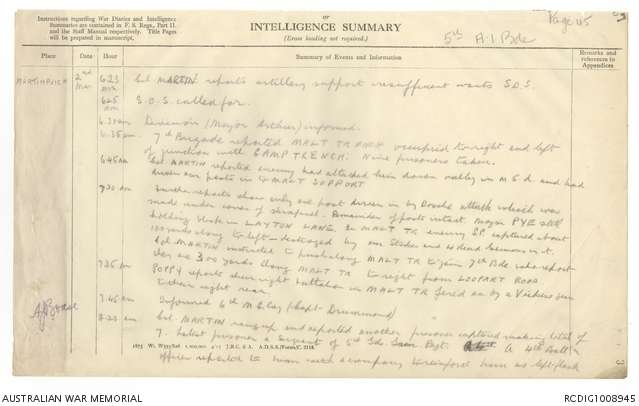 Page 45
Instructions regarding War Diaries and Intelligence
Summaries are contained in F. S. Regs., Part II.
and the Staff Manual respectively. Title Pages
will be prepared in manuscript.
or
INTELLIGENCE SUMMARY
(Erase heading not required.)
5th A.I. Bde
Place
Date
Hour
Summary of Events and Information
Remarks and
references to
Appendices
MARTINPUICH 2nd Mar 6.23 am Col. MARTIN reports artillery support insufficient wants S.O.S.
6.25 am S.O.S. called for.
6.30 am Division (Major informed.
6.35 am 7th Brigade reported MALT TRENCH occupied to right and left
of junction with GAMP TRENCH. Nine prisoners taken.
6.45 am Col. MARTIN reported enemy had attacked down valley in M.5.d. and had
driven our posts in to MALT SUPPORT
7.30 am Further reports show only one post driven in by Bosche attack which was
made under cover of shrapnel. Remainder of posts intact. Major PYE still
holding block in LAYTON LANE. In MALT TR enemy S.P. captured about
100 yards along to left - destroyed by our Stokes and 4 dead Germans in it.
Col MARTIN instructed to push along MALT TR to join 7th Bde who report
they are 300 yards along MALT TR to right from LOOPART ROAD
7.35 am POPPY reports their right battalion in MALT TR fired on by a Vickers gun
to their right rear.
7.45 am Informed 6th M.G. Coy (Capt. Drummond)
8.22 am Col. MARTIN rang up and reported another prisoner captured making total of
7. Latest prisoner a Sergeant of 5th Gds. Gren Regt. A 4th Battn
officer reported to him with a company to reinforce him on left flank
1875 Wt. W593/826 1,000,000 4/15 J.B.C. & A. A.D.S.S./Forms/C. 2118.
AUSTRALIAN WAR MEMORIAL
RCDIG1008945